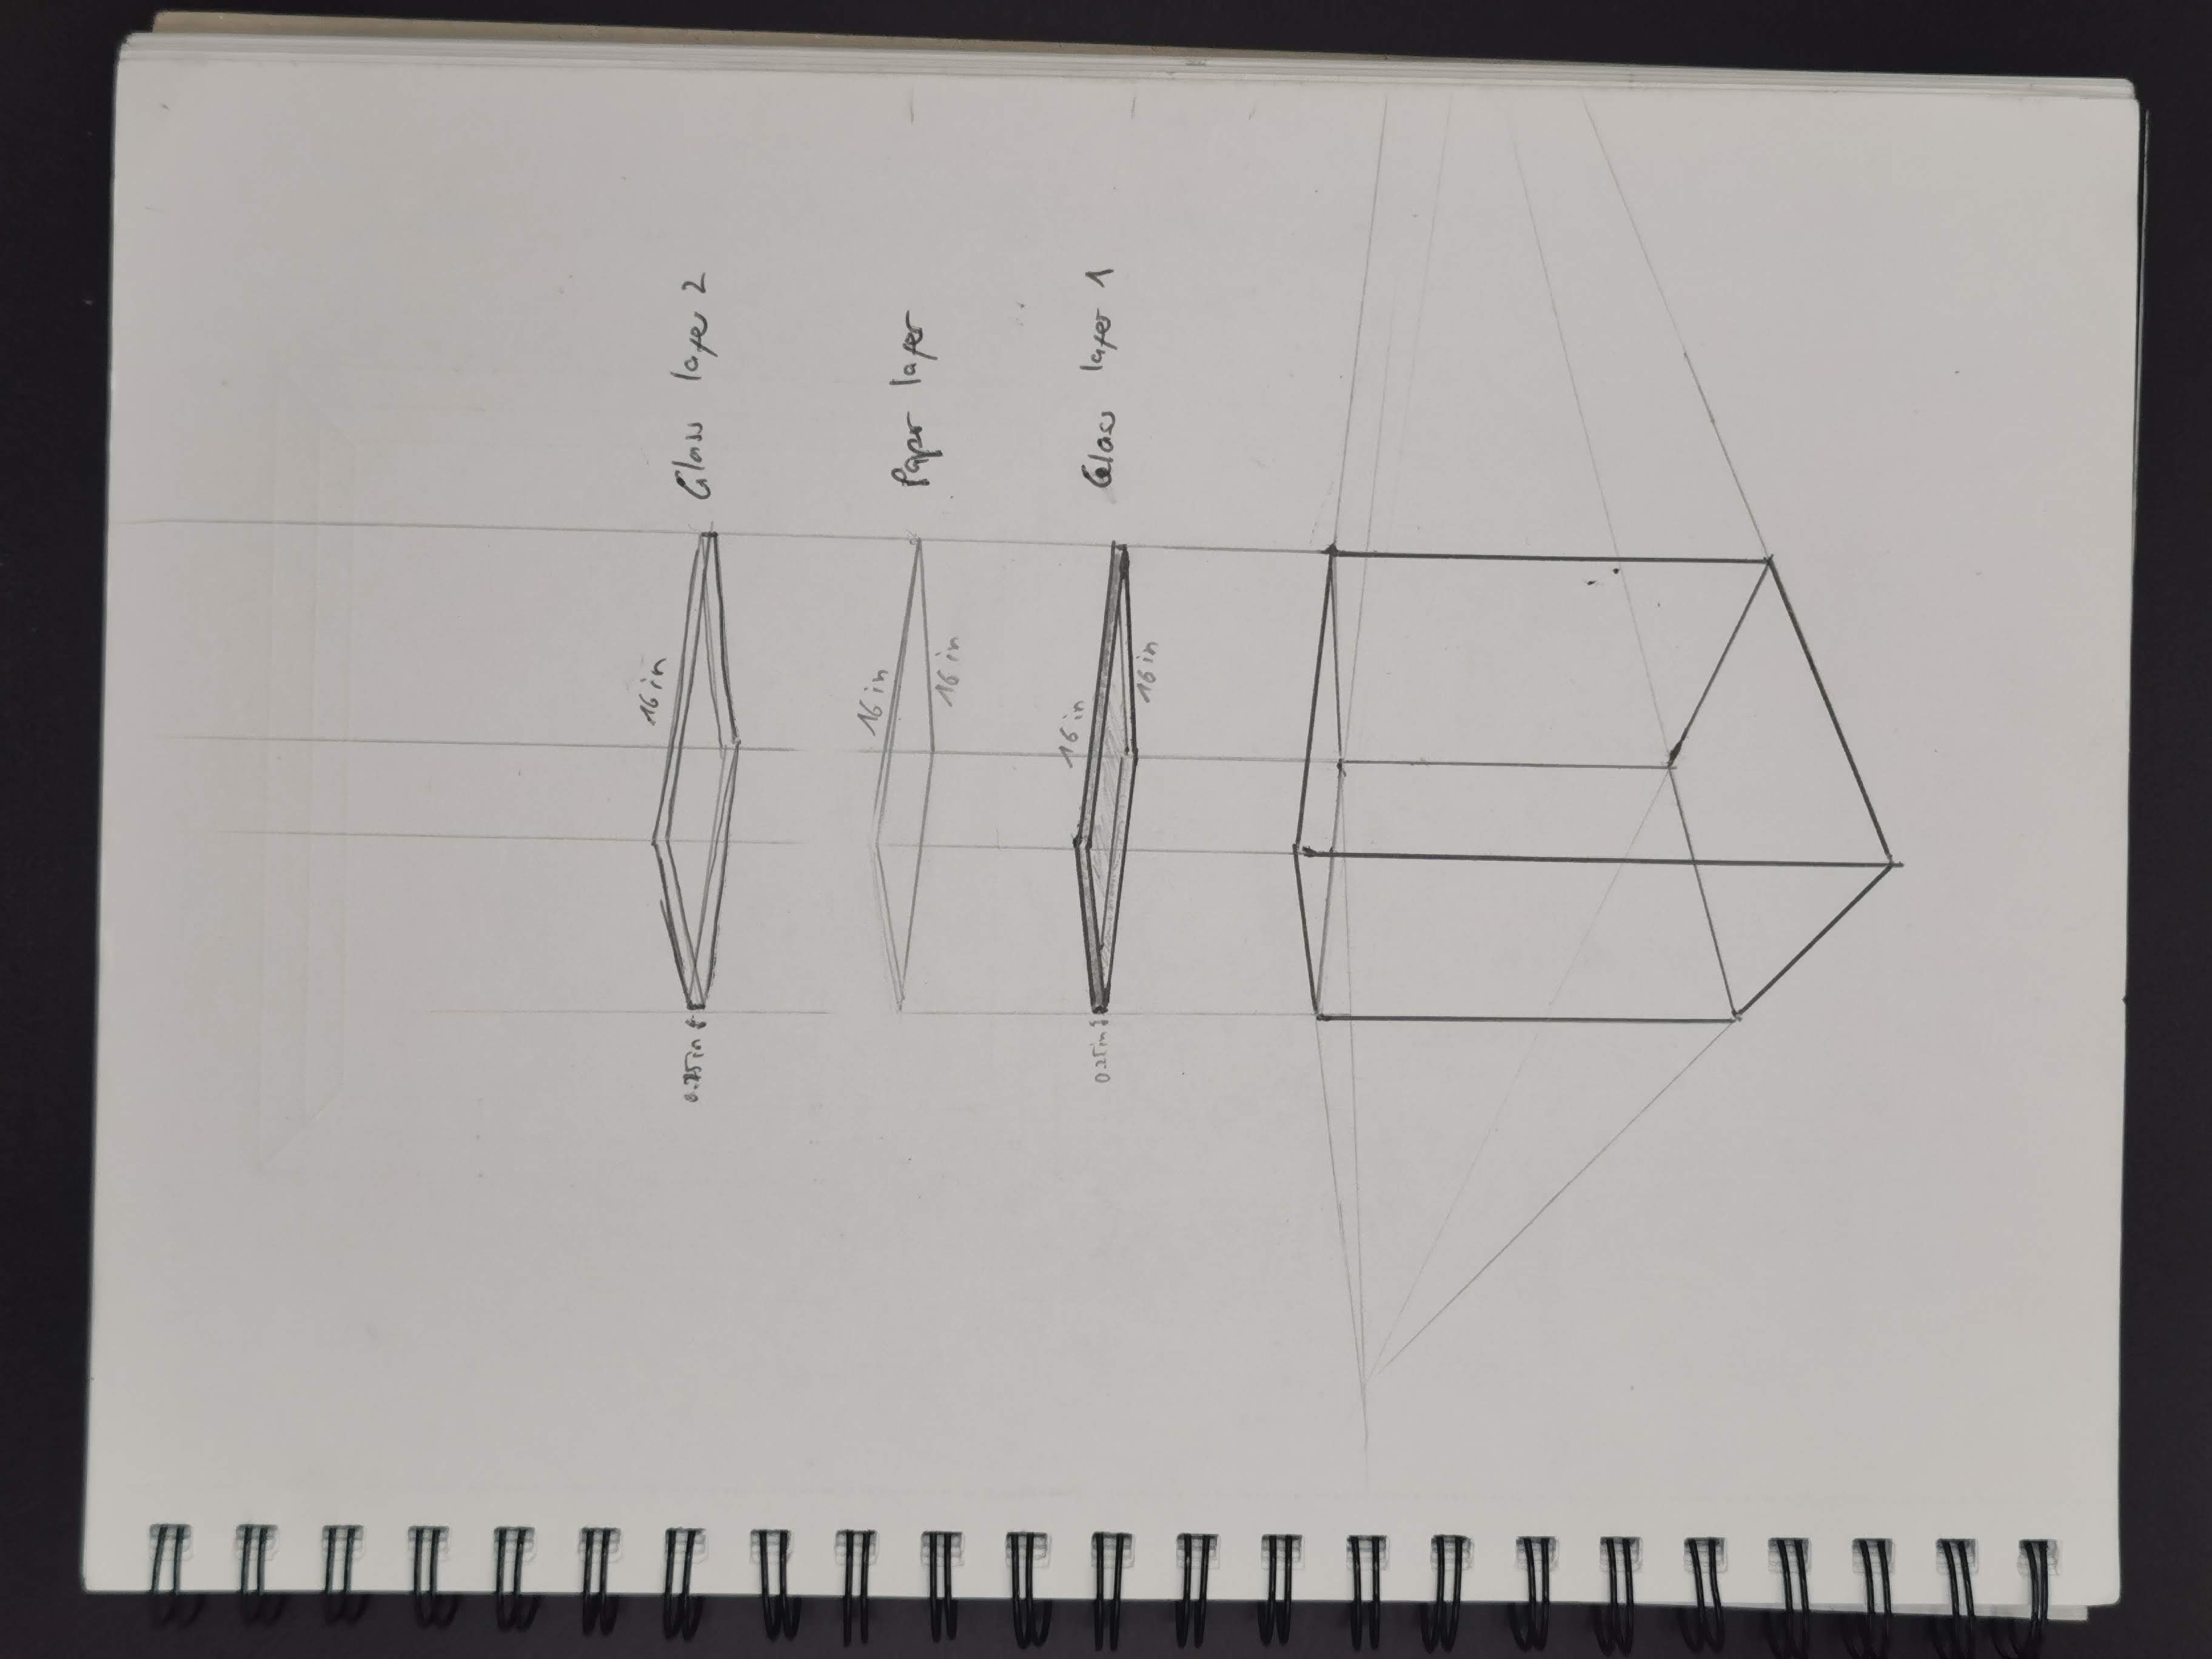 16 in
Glass layer 2
16 in
Paper layer
16 in
16 in
0.25in
Glass layer 1
16 in